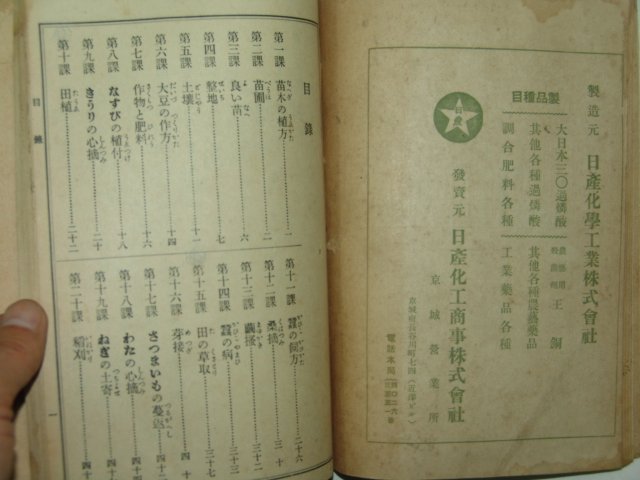 目錄
第一課 苗木の植方 一
第二課 苗圃
第三課 良い苗 六
第四課 整地 七
第五課 土壤 十一
第六課 大豆の作方 十四
第七課 作物と肥料 十六
第八課 なすびの植付 十八
第九課 きうりの心摘 二十
第十課 田植 二十二
第十一課 蠶の飼方 二十六
第十二課 桑摘 三十二
第十三課 繭搔
第十四課 蠶の病 三十三
第十五課 田の草取 三十七
第十六課 芽接 四十
第十七課 さつまいもの蔓返 四十
第十八課 わたの心摘 四十
第十九課 ねぎの土寄 四十
第二十課 稻刈 四十
目錄
一
製造元 日產化學工業株式會社
製品種目
大日本三〇過燐酸
其他各種過燐酸
調合肥料各種
農藝用 殺菌劑 王銅
其他各種農藝藥品
工業藥品各種
日產
發賣元 日產化工商事株式會社
京城營業所
京城府長谷川町七四(近澤ビル)
電話本局